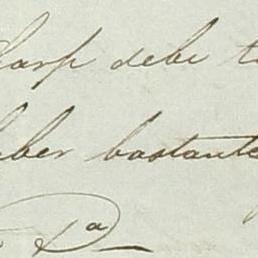 Sharp debe t
haber bastante
Pª